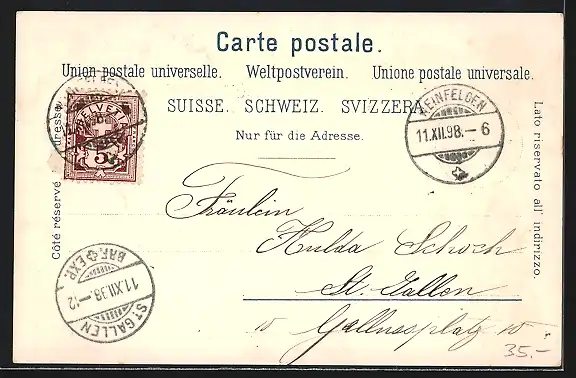 Carte postale.
Union postale universelle. Weltpostverein. Unione postale universale.
SUISSE. SCHWEIZ. SVIZZERA.
Nur für die Adresse.
Côté réservé
Lato riservato all' indirizzo.
HELVETIA
5
RHEINFELDEN
11.XII.98.–6
Fräulein
Hulda Schoch
St. Gallen
15 Gallusplatz 15
BRF. EXP.
11.XII.98–12
ST. GALLEN
35.-